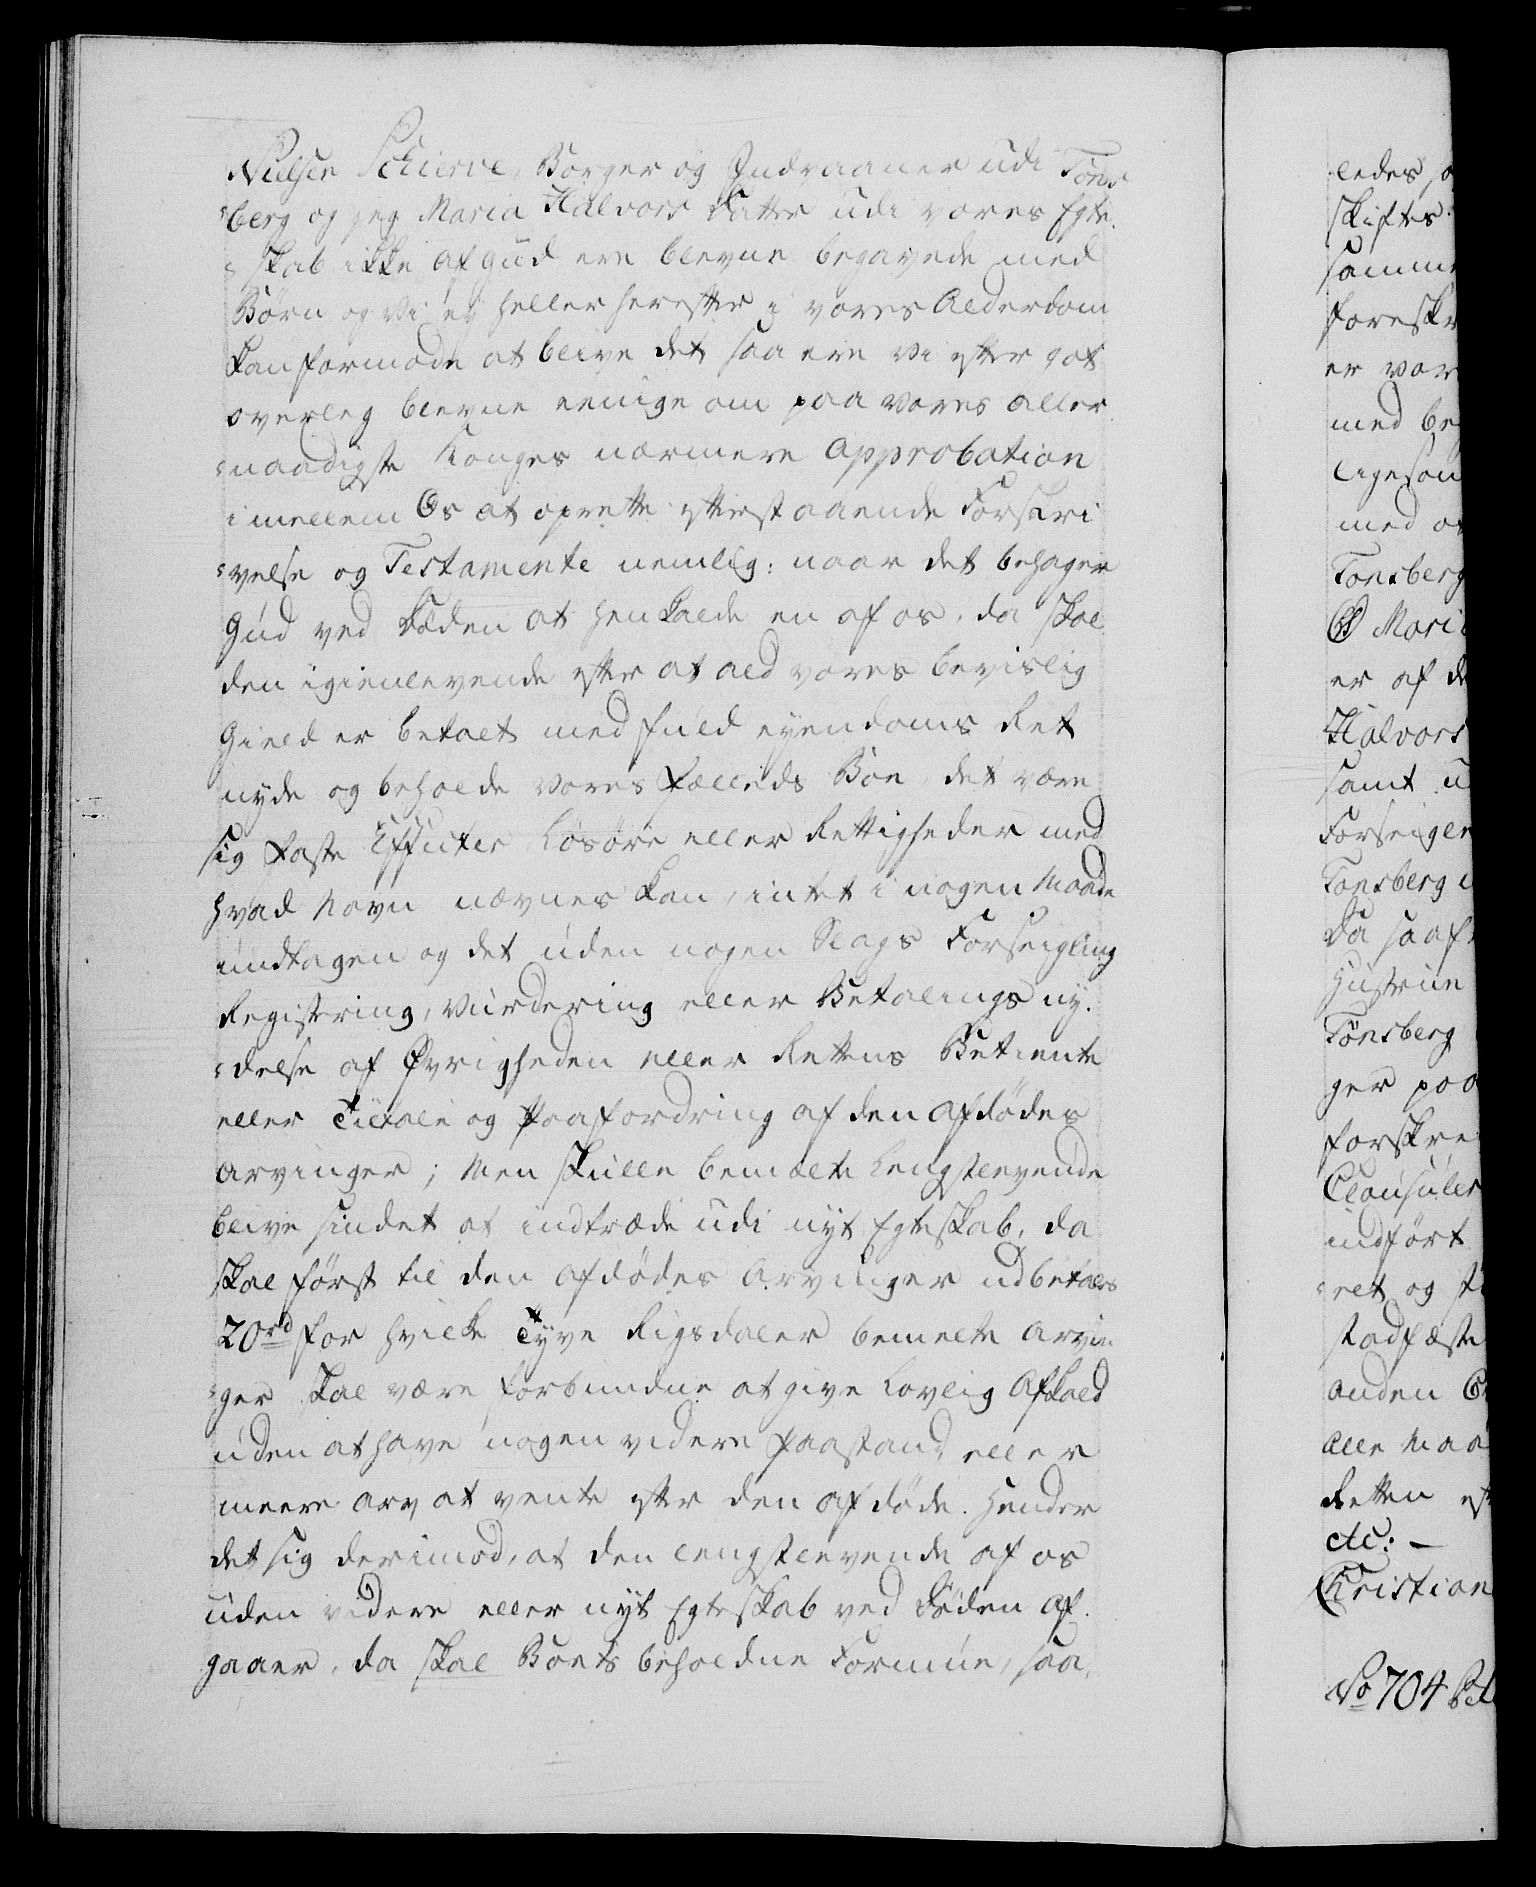 Nielsen Schierve, Borger og Indvaaner udi Tøns
berg og jeg Maria Halvors Datter udi vores Egte
skab ikke af Gud ere blevne begavede med
Børn og vi ey heller herefter i vores Alderdom
kan formode at blive det saa ere vi efter got
overleg blevne eenige om paa vores aller
naadigste Konges nærmere Approbation
imellem Os at oprette efterstaaende Forskri
velse og Testamente nemlig: naar det behager
Gud ved Døden at henkalde en af os, da skal
den igienlevende efter at ald vores bevislig
Gield er betalt med fuld eyendoms Ret
nyde og beholde vores fælleds Boe, det være
sig faste Effecter Løsøre eller Rettigheder med
hvad Navn nævnes kan, intet i nogen Maade
undtagen og det uden nogen Slags Forseigling
Registering, Vurdering eller Betalings ny-
delse af Øvrigheden eller Rettens Betiente
eller Tiltale og Paafordring af den afdødes
Arvinger; Men skulle bemelte Lengstlevende
blive sindet at indtræde udi nyt Egteskab, da
skal først til den afdødes Arvinger udbetales
20rd for hvilke Tyve Rigsdaler bemelte Arvin
ger skal være forbundne at give Lovlig Afkald
uden at have nogen videre paastand eller
meere arv at vente efter den afdøde. Hender
det sig derimod, at den lengstlevende af os
uden videre eller nyt Egteskab ved Døden af-
gaaer, da skal Boets beholdne Formue, saa
ledes
skiftes
samme
er
med
ligesom
med
Tonsberg
Mari
er af
Halvors
samt
Tonsberg
Da
Hustrue
Tønsberg
ger
Clausuler
indført
ret og
anden
alle Maa
Retten
etc: –
Christian
No 704